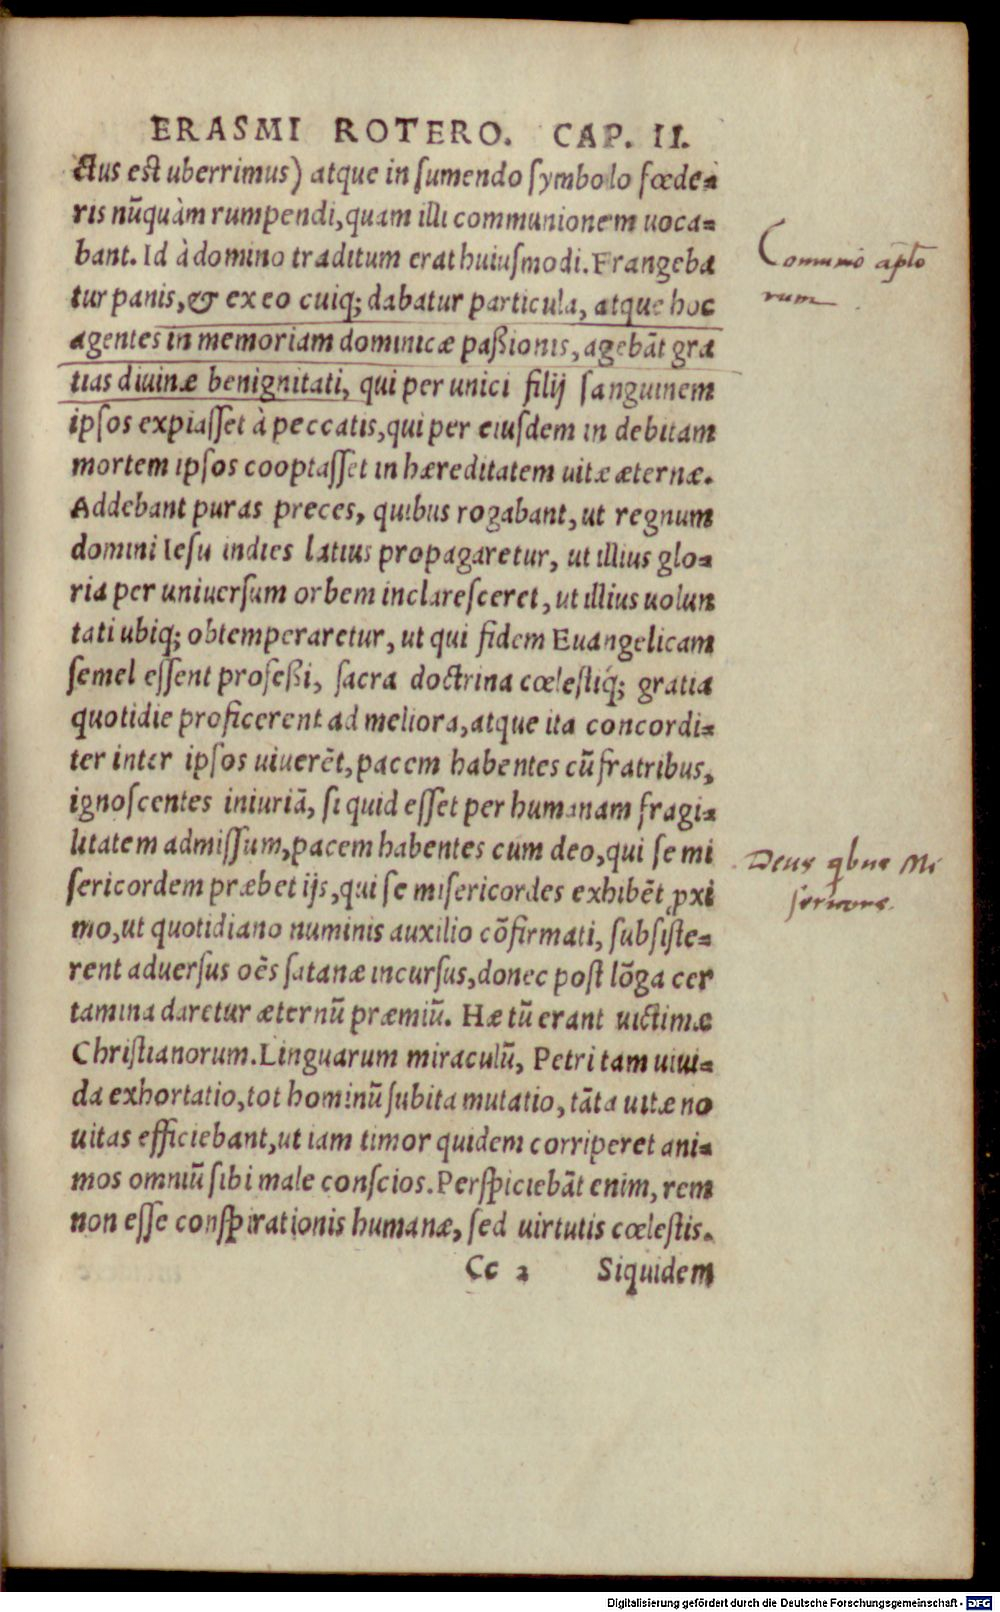 ERASMI ROTERO. CAP. II.
ctus est uberrimus) atque in sumendo symbolo fœde-
ris nũquàm rumpendi, quam illi communionem uoca-
bant. Id à domino traditum erat huiusmodi. Frangeba
tur panis, & ex eo cuiq; dabatur particula, atque hoc
agentes in memoriam dominicæ paßionis, agebãt gra
tias diuinæ benignitati, qui per unici filij sanguinem
ipsos expiasset à peccatis, qui per eiusdem in debitam
mortem ipsos cooptasset in hæreditatem uitæ æternæ.
Addebant puras preces, quibus rogabant, ut regnum
domini Iesu indies latius propagaretur, ut illius glo-
ria per uniuersum orbem inclaresceret, ut illius uolun
tati ubiq; obtemperaretur, ut qui fidem Euangelicam
semel essent profeßi, sacra doctrina cœlestiq́; gratia
quotidie proficerent ad meliora, atque ita concordi-
ter inter ipsos uiuerẽt, pacem habentes cũ fratribus,
ignoscentes iniuriã, si quid esset per humanam fragi-
litatem admissum, pacem habentes cum deo, qui se mi
sericordem præbet ijs, qui se misericordes exhibẽt ꝓxi
mo, ut quotidiano numinis auxilio cõfirmati, subsiste-
rent aduersus oẽs satanæ incursus, donec post lõga cer
tamina daretur æternũ præmiũ. Hæ tũ erant uictimæ
Christianorum. Linguarum miraculũ, Petri tam uiui-
da exhortatio, tot hominũ subita mutatio, tãta uitæ no
uitas efficiebant, ut iam timor quidem corriperet ani-
mos omniũ sibi male conscios. Perspiciebãt enim, rem
non esse conspirationis humanæ, sed uirtutis cœlestis.
Cc 2 Siquidem
Comunio ap̃to
rum
Deus qbus Mi
sericors.
Digitalisierung gefördert durch die Deutsche Forschungsgemeinschaft - DFG